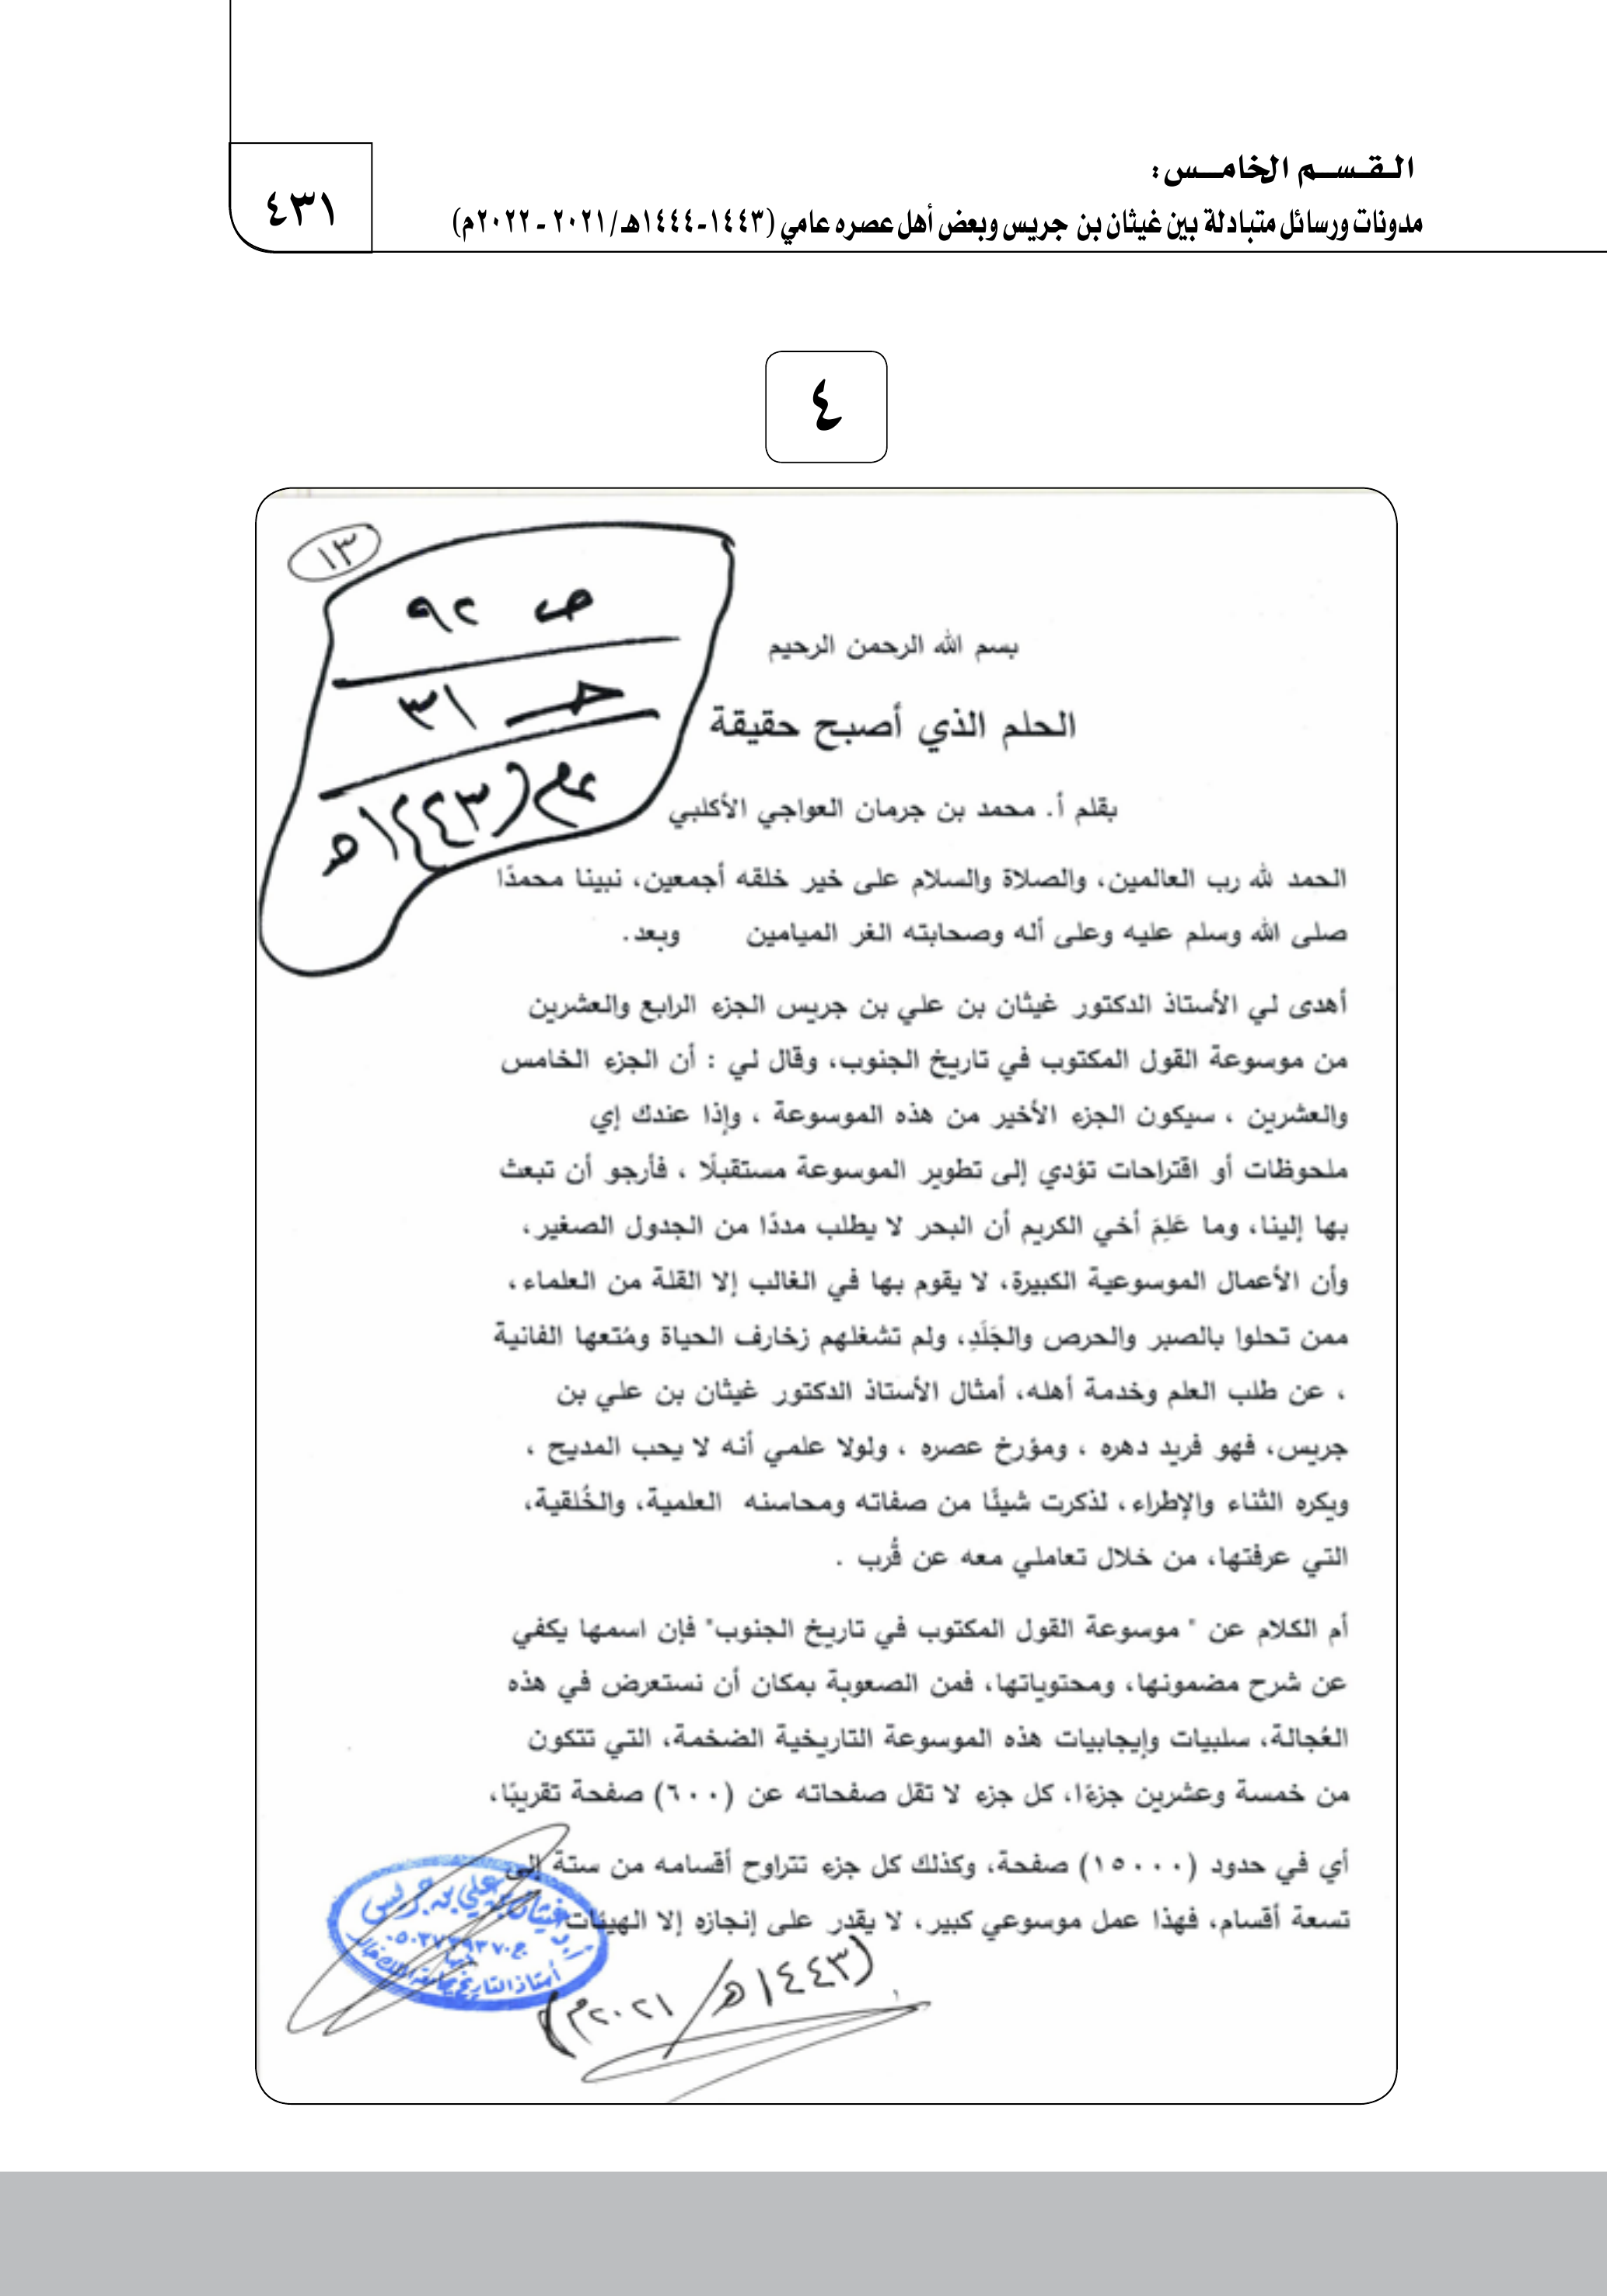 القسم الخامس:
مدونات ورسائل متبادلة بين غيثان بن جريس وبعض أهل عصره عامي (١٤٤٣-١٤٤٤هـ/ ٢٠٢١ - ٢٠٢٢م)
٤٣١
٤
١٣
ص ٩٢
جـ ٣١
عام (١٤٤٣هـ
بسم الله الرحمن الرحيم
الحلم الذي أصبح حقيقة
بقلم أ. محمد بن جرمان العواجي الأكلبي
الحمد لله رب العالمين، والصلاة والسلام على خير خلقه أجمعين، نبينا محمدًا
صلى الله وسلم عليه وعلى أله وصحابته الغر الميامين وبعد.
أهدى لي الأستاذ الدكتور غيثان بن علي بن جريس الجزء الرابع والعشرين
من موسوعة القول المكتوب في تاريخ الجنوب، وقال لي : أن الجزء الخامس
والعشرين ، سيكون الجزء الأخير من هذه الموسوعة ، وإذا عندك إي
ملحوظات أو اقتراحات تؤدي إلى تطوير الموسوعة مستقبلًا ، فأرجو أن تبعث
بها إلينا، وما عَلِمَ أخي الكريم أن البحر لا يطلب مددًا من الجدول الصغير،
وأن الأعمال الموسوعية الكبيرة، لا يقوم بها في الغالب إلا القلة من العلماء،
ممن تحلوا بالصبر والحرص والجَلَدِ، ولم تشغلهم زخارف الحياة ومُتعها الفانية
، عن طلب العلم وخدمة أهله، أمثال الأستاذ الدكتور غيثان بن علي بن
جريس، فهو فريد دهره ، ومؤرخ عصره ، ولولا علمي أنه لا يحب المديح ،
ويكره الثناء والإطراء، لذكرت شيئًا من صفاته ومحاسنه العلمية، والخُلقية،
التي عرفتها، من خلال تعاملي معه عن قُرب .
أم الكلام عن " موسوعة القول المكتوب في تاريخ الجنوب" فإن اسمها يكفي
عن شرح مضمونها، ومحتوياتها، فمن الصعوبة بمكان أن نستعرض في هذه
العُجالة، سلبيات وإيجابيات هذه الموسوعة التاريخية الضخمة، التي تتكون
من خمسة وعشرين جزءًا، كل جزء لا تقل صفحاته عن (٦٠٠) صفحة تقريبًا،
أي في حدود (١٥٠٠٠) صفحة، وكذلك كل جزء تتراوح أقسامه من ستة إلى
تسعة أقسام، فهذا عمل موسوعي كبير، لا يقدر على إنجازه إلا الهيئات
أ.د. غيثان بن علي بن جريس
أستاذ التاريخ بجامعة الملك خالد
(١٤٤٣هـ / ٢٠٢١م)